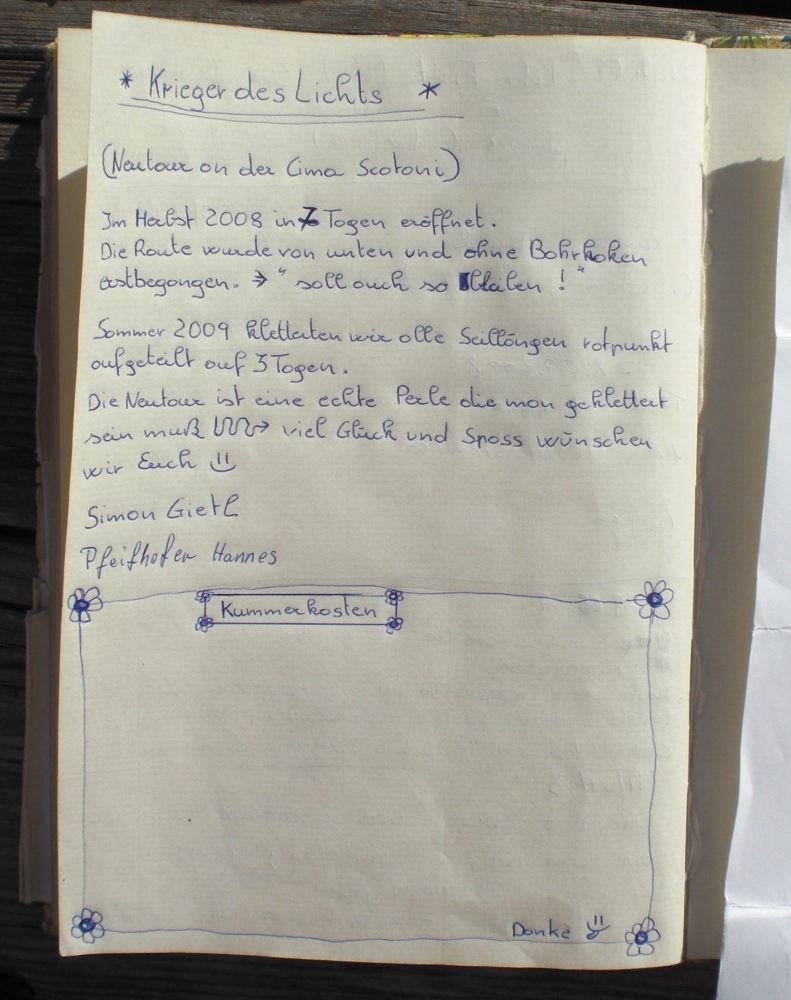 * Krieger des Lichts *
(Neutour an der Cima Scotoni)
Im Herbst 2008 in 7 Tagen eröffnet.
Die Route wurde von unten und ohne Bohrhaken
erstbegangen. → " soll auch so bleiben ! "
Sommer 2009 kletterten wir alle Seillängen rotpunkt
aufgeteilt auf 3 Tagen.
Die Neutour ist eine echte Perle die man geklettert
sein muß → viel Glück und Spass wünschen
wir Euch
Simon Gietl
Pfeifhofer Hannes
Kummerkasten
Danke